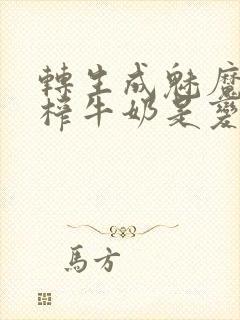 轉生成魅魔
榨牛奶是變
馬方